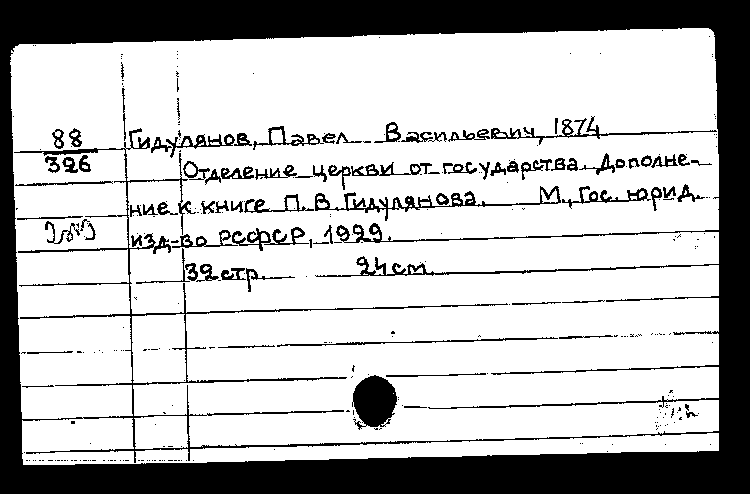 88 Гидулянов, Павел Васильевич, 1874
326 Отделение церкви от государства. Дополне-
ние к книге П. В. Гидулянова. М., Гос. юрид.
изд-во РСФСР, 1929.
32 стр. 24 cm.